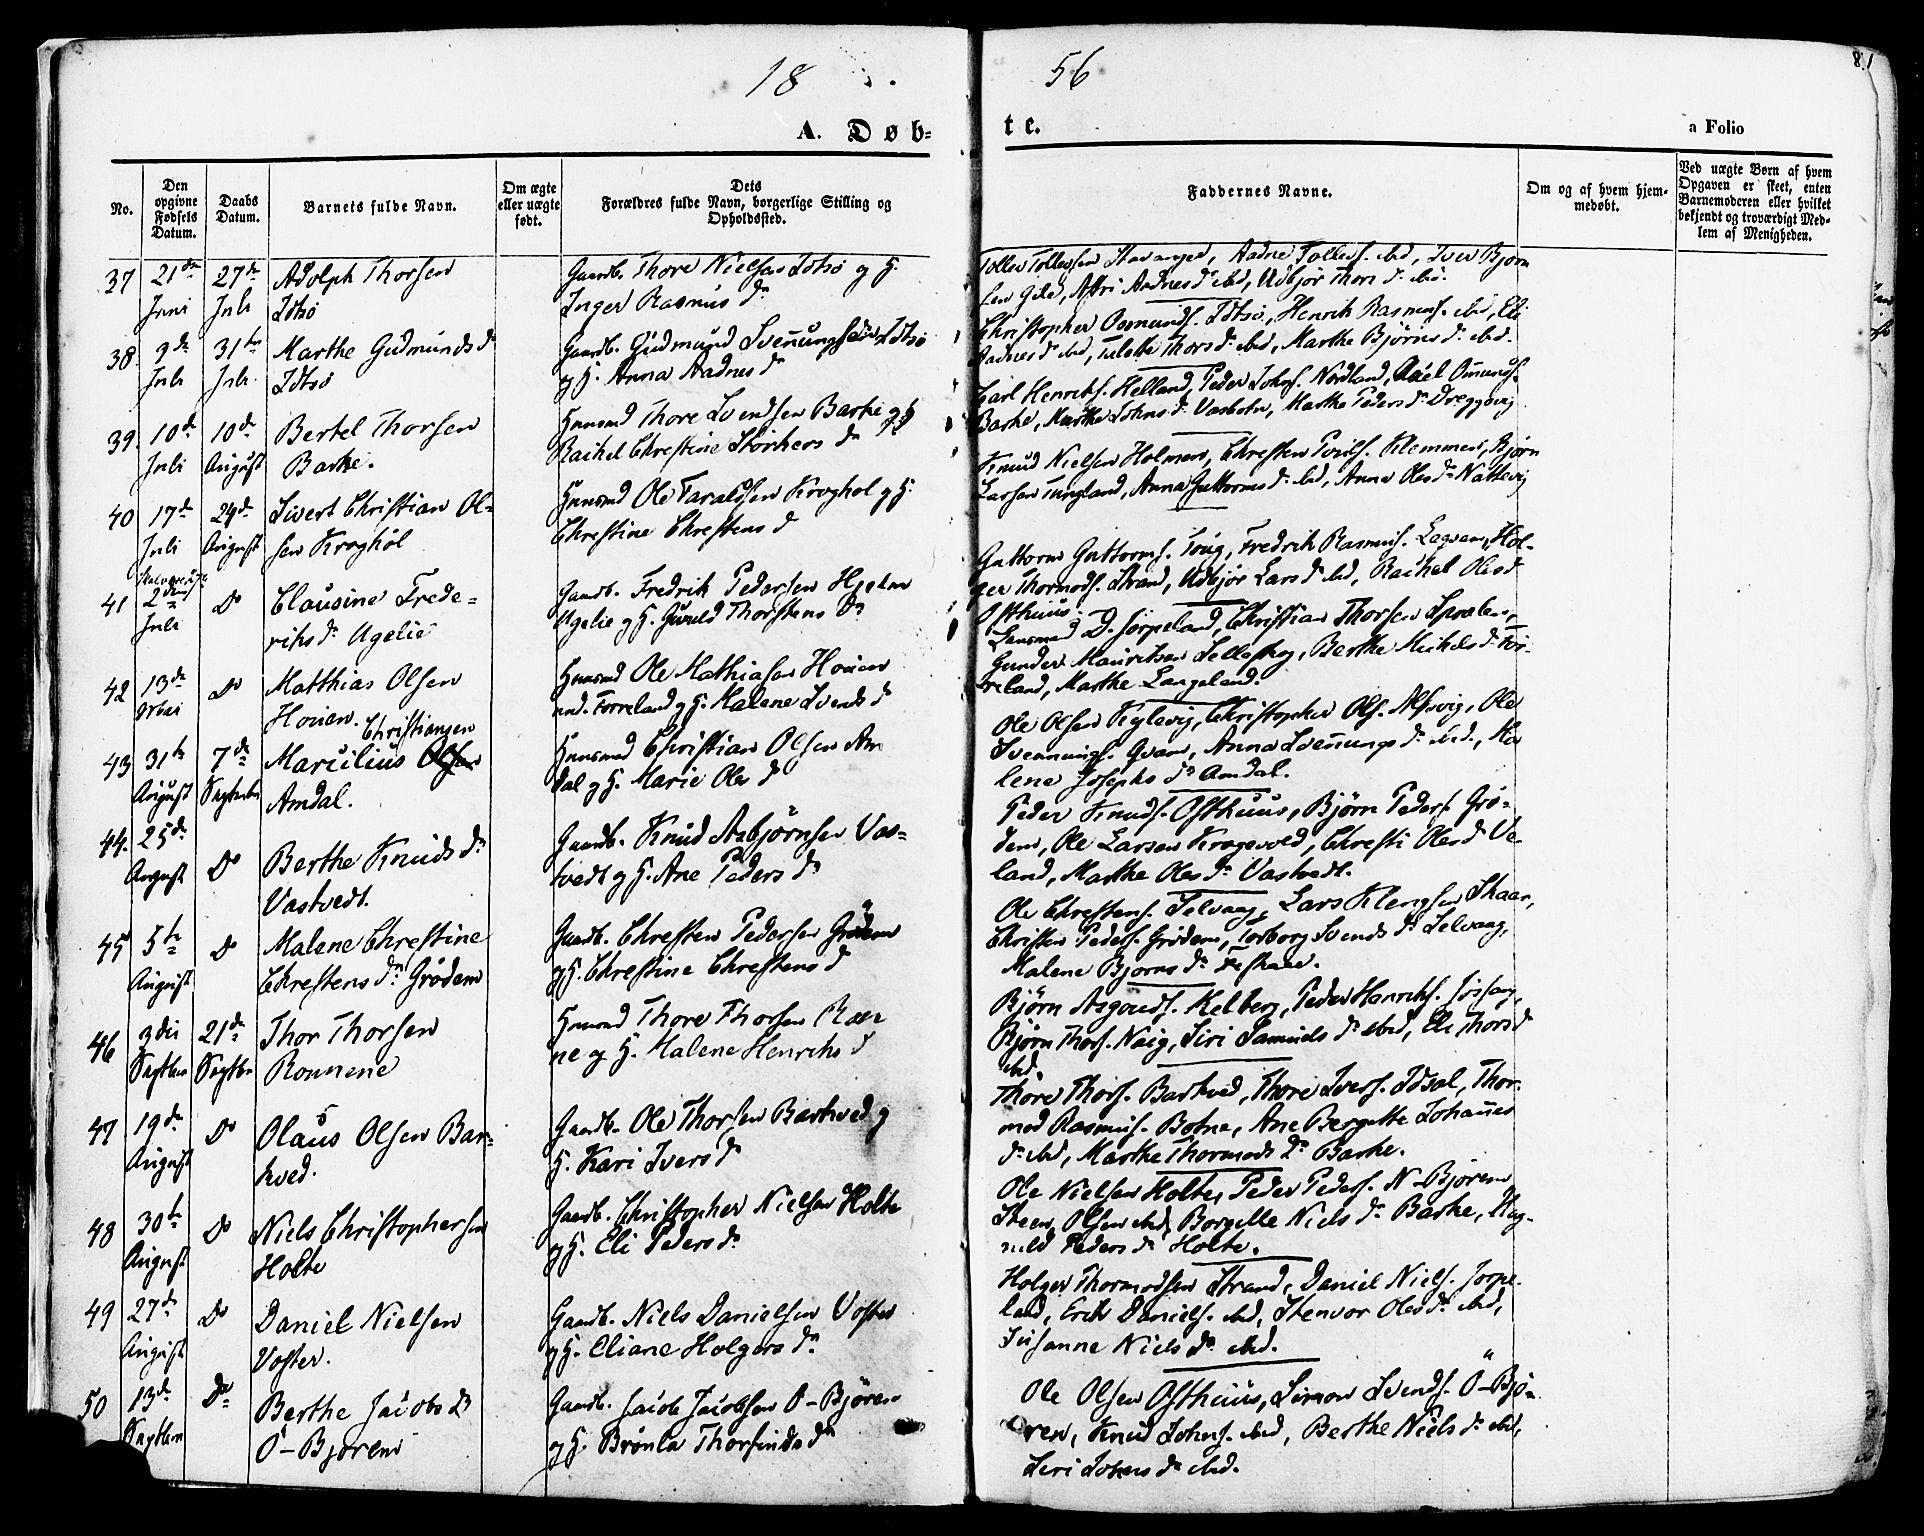 18 56
8.1
A. Døb= te.
a Folio
No.
Den opgivne Fødsels Datum.
Daabs Datum.
Barnets fulde Navn.
Om ægte eller uægte født.
Dets Forældres fulde Navn, borgerlige Stilling og Opholdssted.
Faddernes Navne.
Om og af hvem hjemmedøbt.
Ved uægte Børn af hvem Opgaven er skeet, enten Barnemoderen eller hvilket bekjendt og troværdigt Medlem af Menigheden.
37 21de Juni 27de Juli
Adolph Thorsen
Idtsø
Gaardb. Thore Nielsen Idtsø og H.
Inger Rasmus d.
Tollev Tollevsen Stavanger, Aadne Tollevs. ibid, Iver Bjørn
sen Gile, Aadnes d. ibid, Udbjør Thors d. ibid.
38 9de Juli 31te Juli
Marthe Gudmunds d.
Idtsø
Gaardb. Gudmund Svenungsen Idtsø
og H. Anna Aadnes d.
Christopher Osmunds. Idtsø, Henrik Rasmus. ibid, Eli
Aadnes d. ibid, Thors d. ibid, Marthe Bjørns d. ibid.
39. 10de Juli 10de August
Bertel Thorsen
Barke.
Huusmd Thore Svendsen Barke og H.
Rachel Christine d.
Carl Henriks. Helland, Peder Johns. Nordland, Omunds.
Barke, Marthe Johns d. Marthe Peders d.
40 17de Juli 24de August
Sivert Christian Ol=
sen Kroghol
Huusmd Ole Taraldsen Kroghol og H.
Christine Christens d
Knud Nielsen Holmen, Christen Klemmes, Bjørn
Larsen Tungland, Anna Guttorms d. ibid, Anna Oles d.
41 2den Juli Do
Clausine Frede=
riks d. Ugelie
Gaardb. Fredrik Pedersen Hjelm
Ugelie og H. Gunild Thorstens d.
Guttorm Guttorms. Toug, Fredrik Rasmus. Hol=
ger Thormods. Strand, Udbjør Lars d. ibid, Rachel Oles d.
Osthuus.
42 13de Do
Matthias Olsen
Houen.
Huusmd Ole Mathiasen Houen
und. Forreland og H. Malene Svends d
Lensmand D. Jørpeland, Christian Thorsen
Gunder Mauritsen Berthe Michels d. For=
reland, Marthe Langeland.
43 31te August 7de September
Christiansen
Marcilius Olsen
Amdal.
Huusmd Christian Olsen Am
dal og H. Marie Oles d
Ole Olsen Christopher Ols. Alsvig, Ole
Svennings. Qvam, Anna Svennungs d. ibid, Ma
lene Josephs d. Amdal.
44. 25de August Do
Berthe Knuds d.
Vastvedt.
Gaardb. Knud Asbjørnsen Vas=
tvedt og H. Ane Peders d.
Peder Knuds. Osthuus, Bjørn Peders. Grø=
dem, Ole Larsen Krogevold, Christi Oles d. Ve=
land, Marthe Oles d. Vastvedt.
45 5te August Do
Malene Christine
Christens d. Grødem
Gaardb. Christen Pedersen Grødem
og H. Christine Christens d
Ole Christens. Selvaag, Lars Klengsen Skaar,
Christen Peders. Grødem, Torborg Svends d. Selvaag,
Malene Bjørns d.
46 3die September 21de September
Thor Thorsen
Rounene
Huusmd Thore Thorsen Roune
ne og H. Malene Henriks d
Bjørn Asgouts. Kelberg, Peder Henriks. Jøssang,
Bjørn Thors. Naig, Siri Samuels d. ibid, Eli Thors d
ibid.
47 19de August Do
Olaus Olsen Bar=
kved.
Gaardb. Ole Thorsen Barkved og
H. Kari Ivers d.
Thore Thors. Barkved, Thore Ivers. Idsal, Thor=
mod Rasmus. Botne, Ane Bergitte Johannes
d. ibid, Marthe Thormods d. Barke.
48 30te August Do
Niels Christophersen
Holte
Gaardb. Christopher Nielsen Holte
og H. Eli Peders d.
Ole Nielsen Holte, Peder Peders. N-Bjøren,
Steen Olsen ibid, Borgelle Niels d. Barke, Rag=
nild Peders d. Holte.
49 27de August Do
Daniel Nielsen
Voster.
Gaardb. Niels Danielsen Voster
og H. Eliane Holgers d.
Holger Thormodsen Strand, Daniel Niels. Jørpe=
land, Erik Daniels. ibid, Stenvor Oles d. ibid,
Susanne Niels d. ibid.
50 13de September Do
Berthe Jacobs d
Ö-Bjøren
Gaardb. Jacob Jacobsen Ö-Bjøren
og H. Brønla Thorsens d.
Ole Olsen Osthuus, Simon Svends. Ö-Bjø=
ren, Knud Johns. ibid, Berthe Niels d. ibid,
Siri Johns d. ibid.